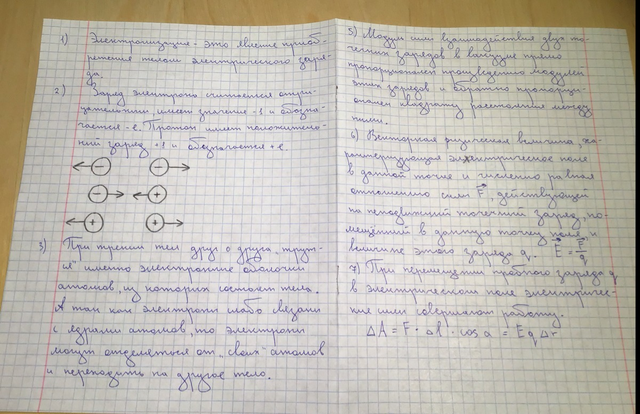 1) Электризация - это явление приоб-
ретения телом электрического заря-
да.
2) Заряд электрона считается отри-
цательным, имеет значение -1 и обозна-
чается -е. Протон имеет положитель-
ный заряд +1 и обозначается +е.
← - - →
- → ← +
← + + →
3) При трении тел друг о друга „трут-
ся" именно электронные оболочки
атомов, из которых состоят тела.
А так как электроны слабо связаны
с ядрами атомов, то электроны
могут отделяться от „своих" атомов
и переходить на другое тело.
5) Модули силы взаимодействия двух то-
чечных зарядов в вакууме прямо
пропорционален произведению модулей
этих зарядов и обратно пропорци-
онален квадрату расстояния между
ними.
6) Векторная физическая величина, ха-
рактеризующая электрическое поле
в данной точке и численно равная
отношению силы F, действующей
на неподвижный точечный заряд, по-
мещённый в данную точку поля, к
величине этого заряда q. E = F/q
7) При перемещении пробного заряда q
в электрическом поле электричес-
кие силы совершают работу.
ΔA = F · Δl · cos a = E q Δr